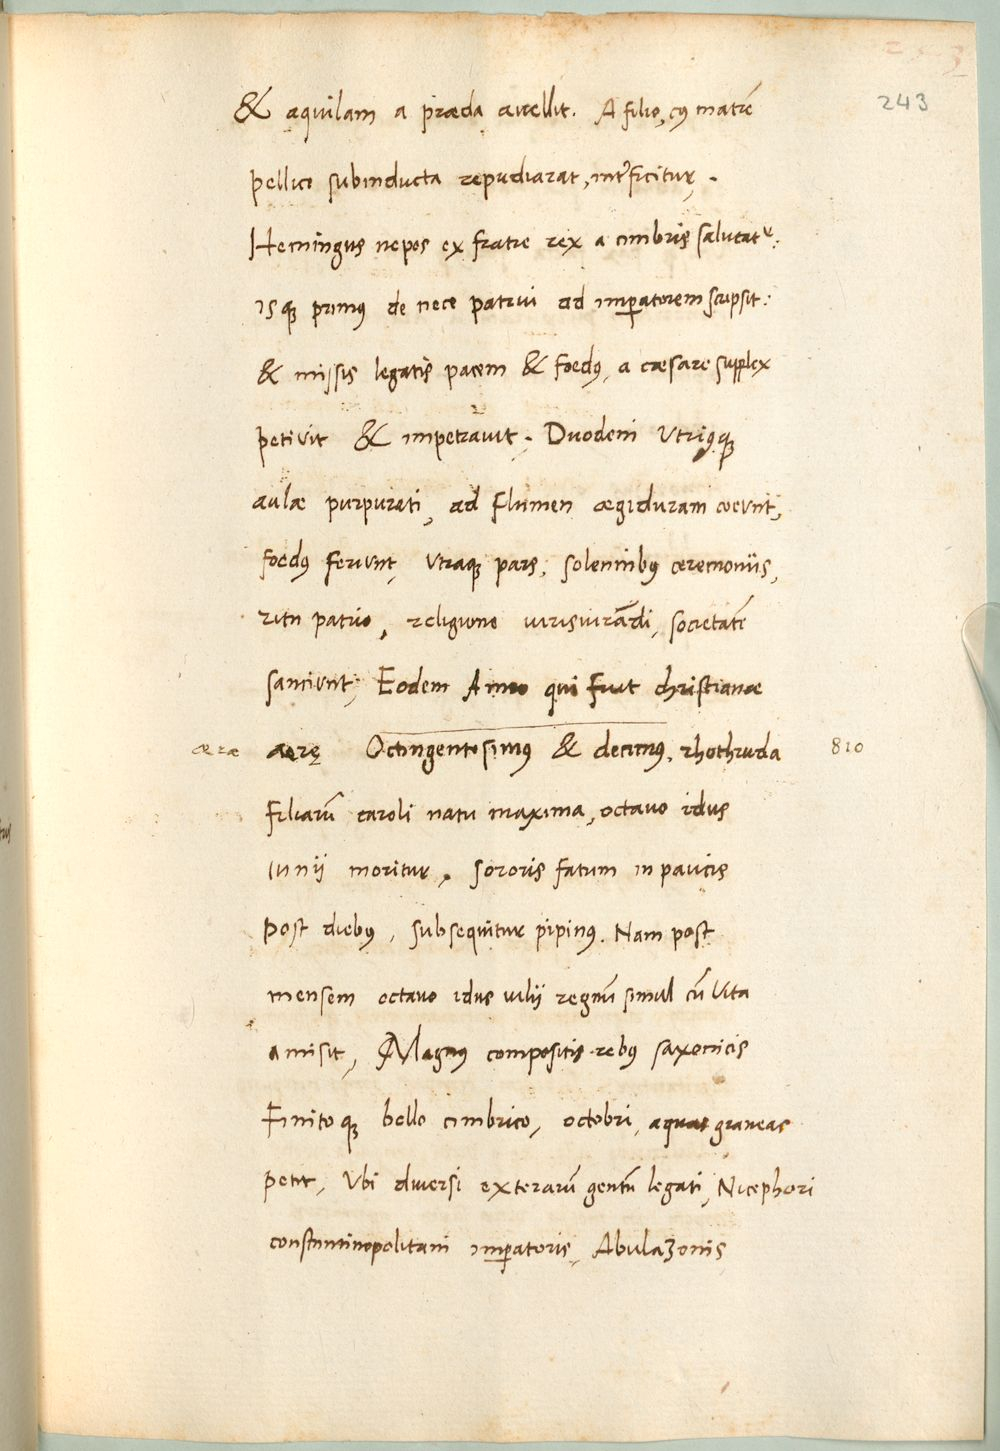 243
& aquilam a præda auellit. A filio, cuꝫ matrē
pellice subinducta repudiarat, int̃ficitur.
Hemingus nepos ex fratre rex a cimbris salutatᵘʳ,
isqꝫ primꝰ de nece patrui ad imꝑatorem scripsit:
& missis legatis pacem & foedꝰ, a cæsare supplex
petivit & impetravit. Duodeni Utriꝰqꝫ
aulæ purpurati, ad flumen ægiduram coeunt,
foedꝰ feriunt, utraqꝫ pars, solennibꝰ ceremoniis,
ritu patrio, religione iurisiurādi, societatē
sanciunt, Eodem Anno qui fuit christianæ
æræ aerę Octingentesimꝰ & decimꝰ, rhothruda 810
filiarū caroli natu maxima, octavo idus
Iunii moritur, Sororis fatum in paucis
post diebꝰ, subsequitur pipinꝰ. Nam post
mensem octavo idus iulii regnū simul cū vita
amisit, Magnꝰ compositis rebꝰ saxonicis
Finitoqꝫ bello cimbrico, octobri, aquas graneas
petit, Ubi diversi exterarū gentiū legati, Nicephori
constantinopolitani imꝑatoris, Abulazonis